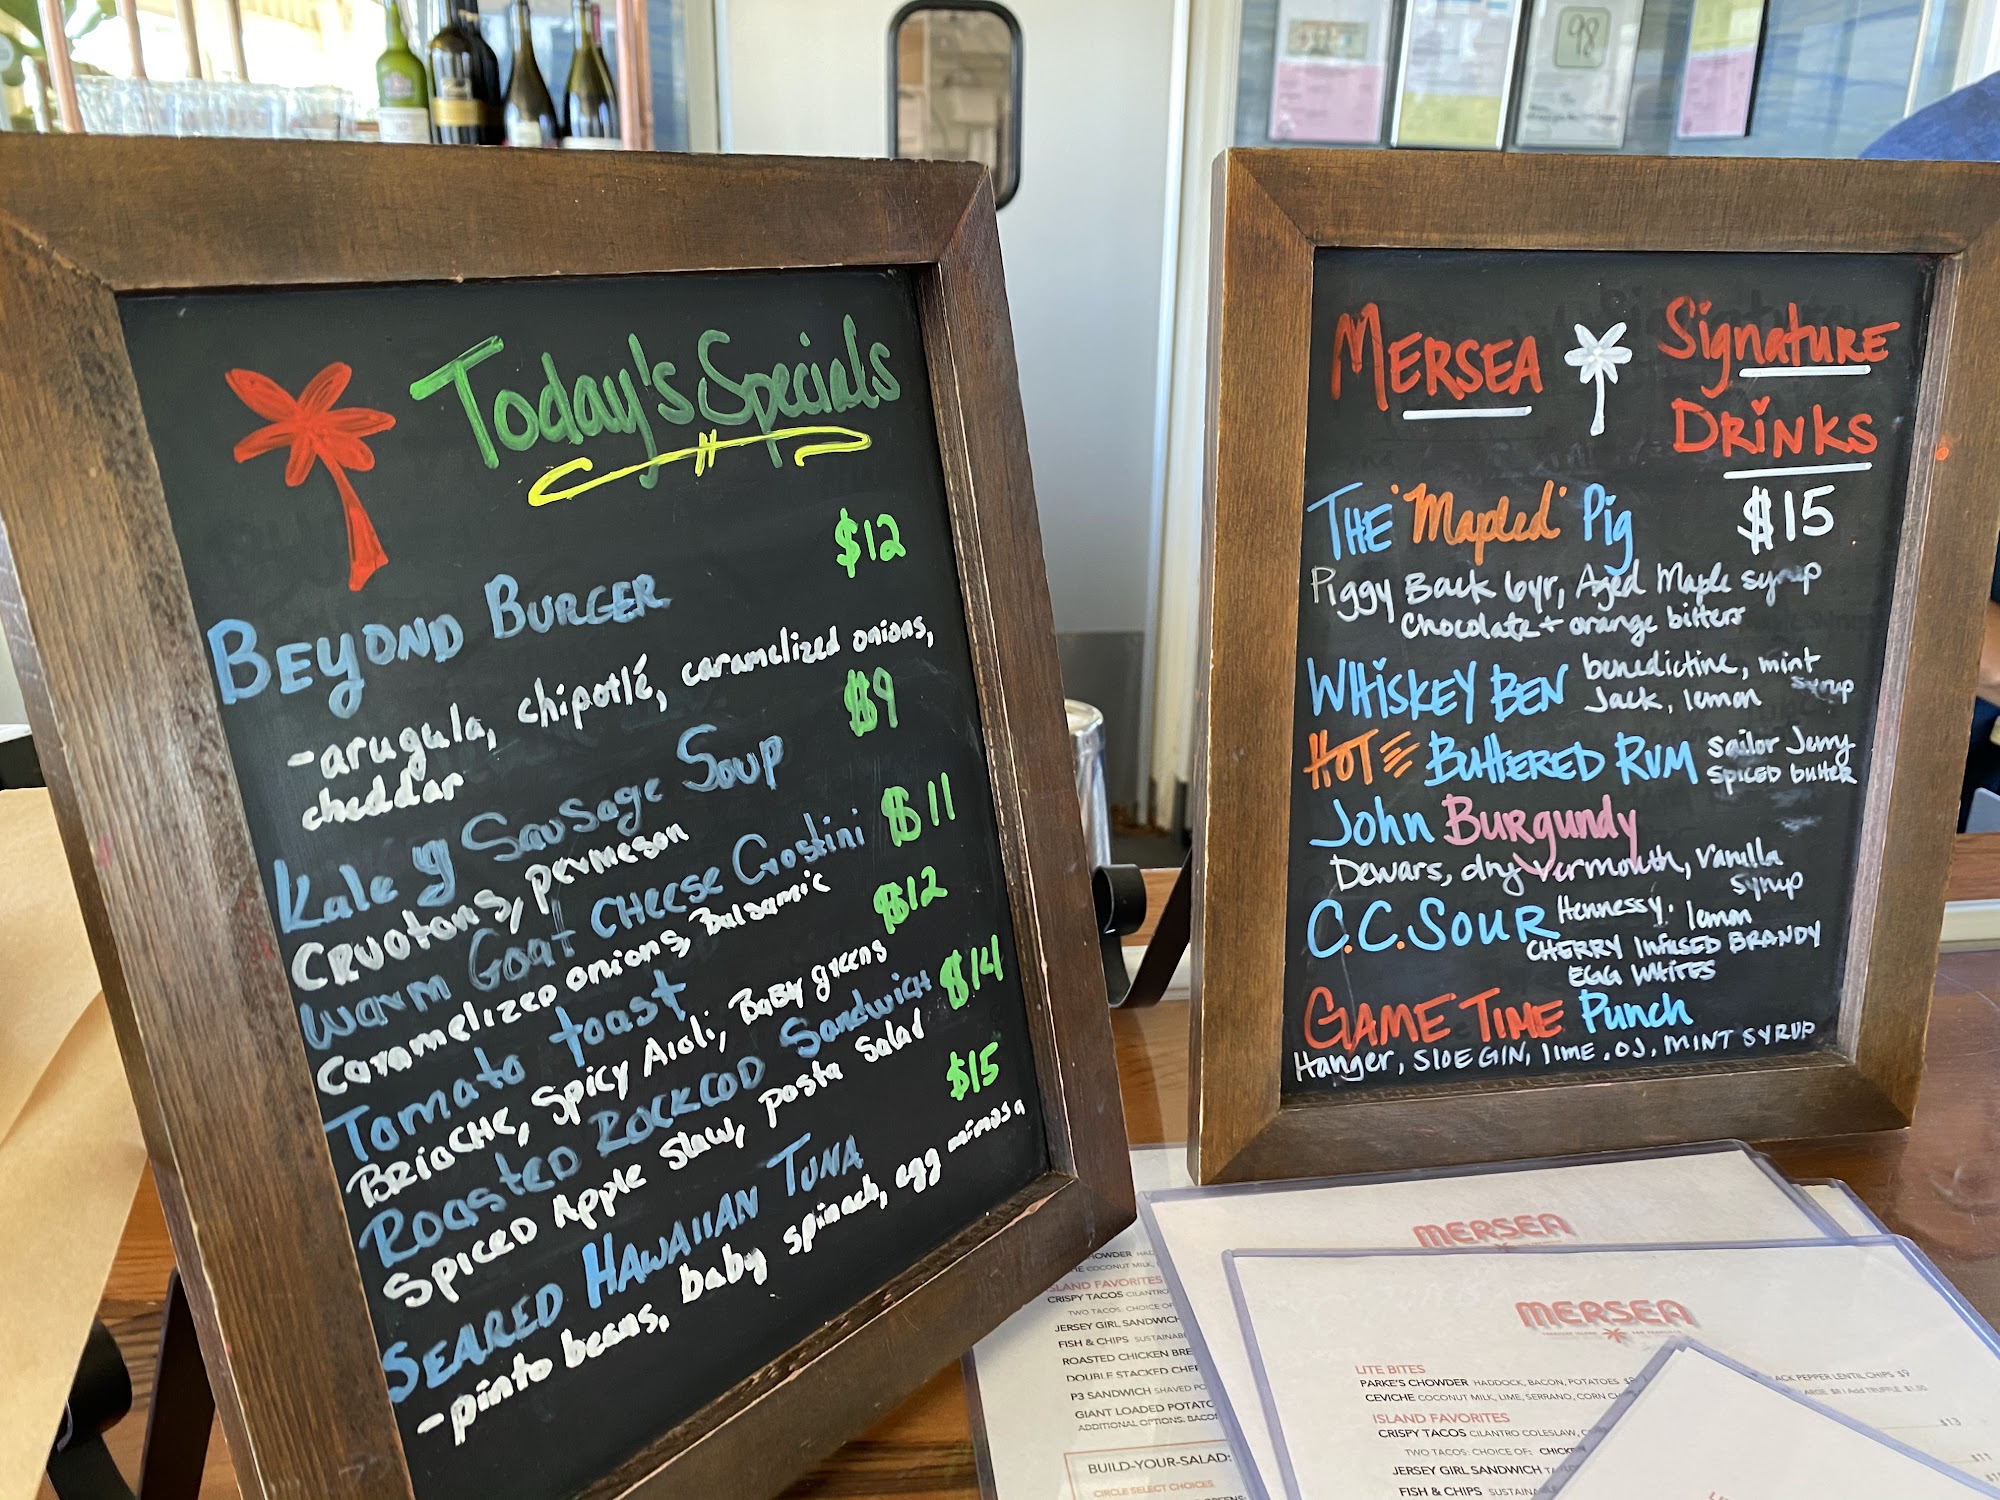 Today's Specials
$12
BEYOND BURGER
-arugula, chipotlé, caramelized onions,
cheddar
$9
Kale y Sausage Soup
Cruotons, permeson
$11
Warm Goat CHeese Crostini
Caramelized onions, Balsamic
$12
Tomato toast
BRIOCHE, SPICY Aioli, BaBy greens
$14
Roasted Rockcod Sandwich
Spiced Apple Slaw, pasta Salad
$15
SEARED HAWAIIAN TUNA
-pinto beans, baby spinach, egg mimosa
MERSEA
Signature
DRINKS
THE 'Mapled' Pig $15
Piggy Back 6yr, Aged Maple syrup
Chocolate + orange bitters
WHISKEY BEN benedictine, mint
Jack, lemon syrup
HOT BUTTERED RUM Sailor Jerry
SPICED butter
John Burgundy
Dewars, dry Vermouth, Vanilla
syrup
C.C. SOUR Hennessy. lemon
CHERRY INFUSED BRANDY
EGG WHITES
GAME TIME Punch
Hanger, SIDE GIN, lime, OJ, MINT SYRUP
98
MERSEA
ISLAND FAVORITES
CRISPY TACOS CILANTRO
TWO TACOS: CHOICE OF:
JERSEY GIRL SANDWICH
FISH & CHIPS
ROASTED CHICKEN
DOUBLE STACKED
P3 SANDWICH SHAVED
GIANT LOADED
ADDITIONAL OPTIONS: BACON
BUILD-YOUR-SALAD:
CIRCLE SELECT CHOICES
MERSEA
LITE BITES
PARKE'S CHOWDER HADDOCK, BACON, POTATOES
CEVICHE COCONUT MILK, LIME, SERRANO, CORN
PEPPER LENTIL CHIPS $9
ISLAND FAVORITES
CRISPY TACOS CILANTRO COLESLAW,
$13
TWO TACOS: CHOICE OF: CHICKEN
JERSEY GIRL SANDWICH
FISH & CHIPS